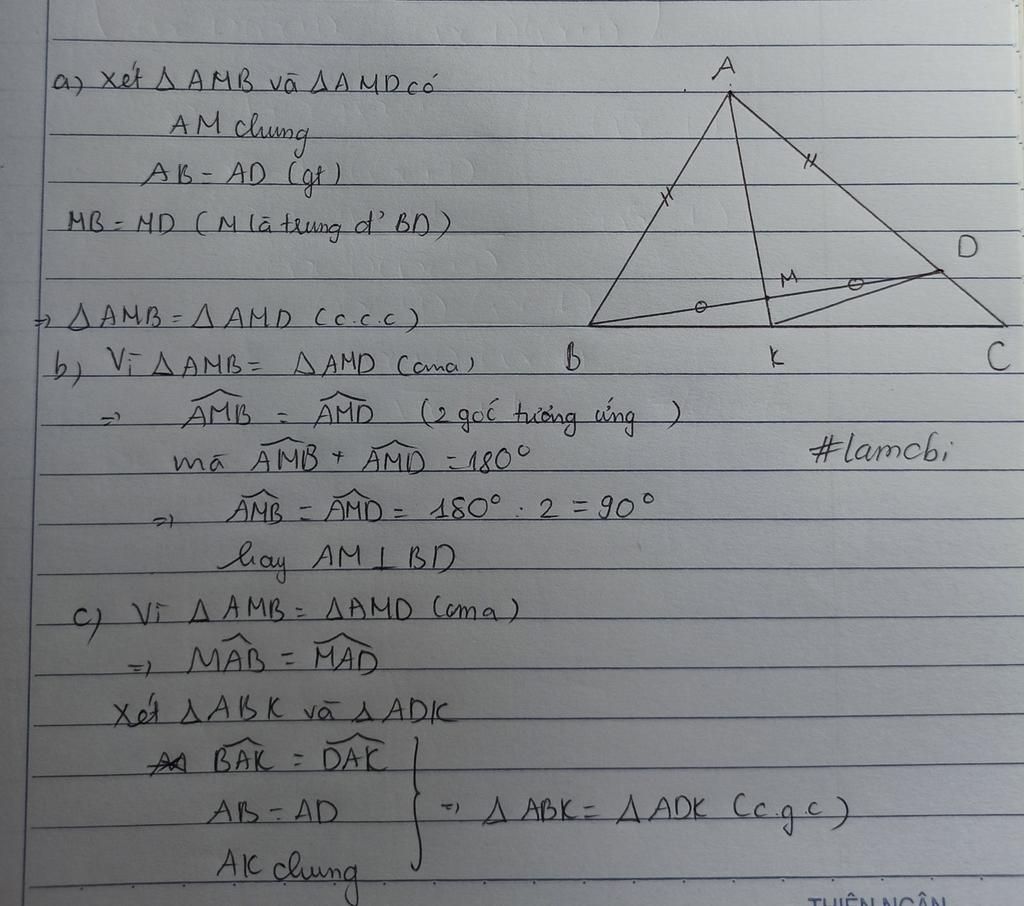 a) Xét Δ AMB và Δ AMD có
AM chung
AB = AD (gt)
MB = MD (M là trung đ' BD)
=> Δ AMB = Δ AMD (c.c.c)
b) Vì Δ AMB = Δ AMD (cma)
=> AMB = AMD (2 góc tương ứng)
mà AMB + AMD = 180°
=> AMB = AMD = 180° : 2 = 90°
hay AM ⊥ BD
c) Vì Δ AMB = Δ AMD (cma)
=> MAB = MAD
Xét Δ ABK và Δ ADK
BAK = DAK
AB = AD
AK chung
=> Δ ABK = Δ ADK (c.g.c)
A
D
M
B
K
C
#lamcbi
THIÊN NGÂN